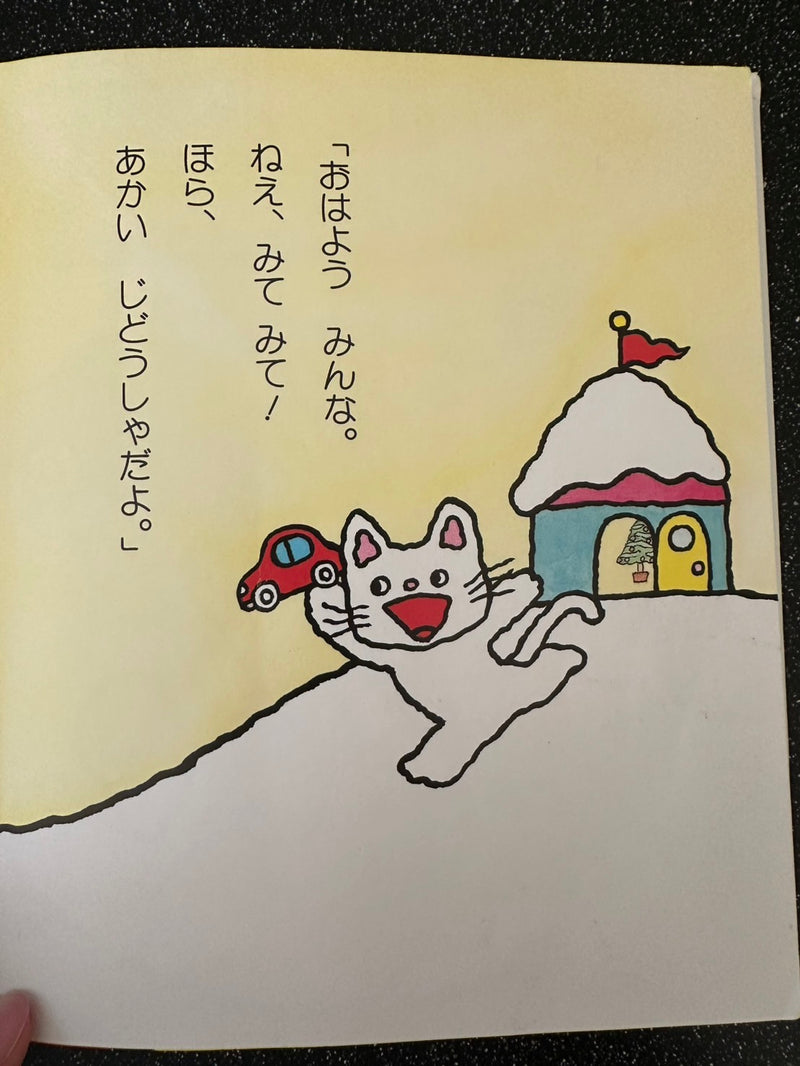 「おはよう　みんな。
ねえ、みて みて!
ほら、
あかい　じどうしゃだよ。」